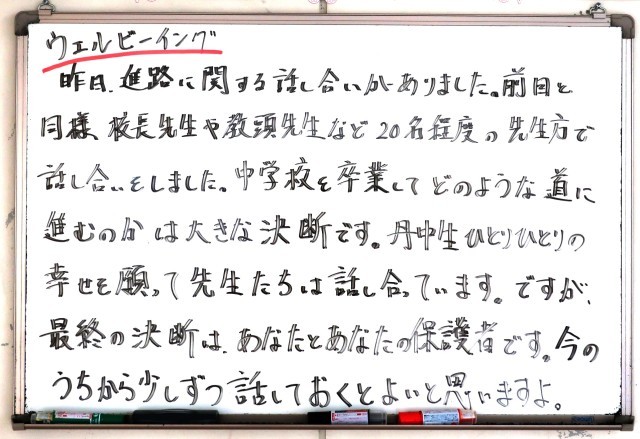 ウェルビーイング
昨日、進路に関する話し合いがありました。前回と
同様、校長先生や教頭先生など20名程度の先生方で
話し合いをしました。中学校を卒業してどのような道に
進むのかは大きな決断です。丹中生ひとりひとりの
幸せを願って先生たちは話し合っています。ですが、
最終の決断は、あなたとあなたの保護者です。今の
うちから少しずつ話しておくとよいと思いますよ。